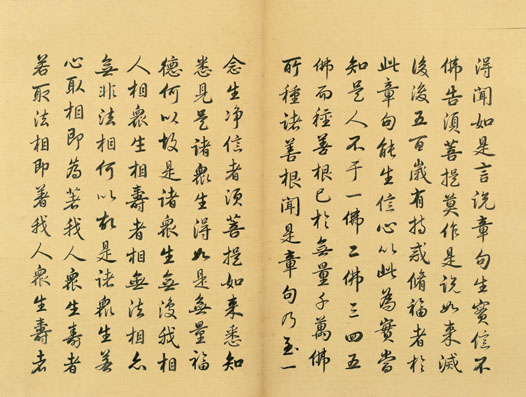 得聞如是言說章句生實信不
佛告須菩提莫作是說如来滅
後後五百歲有持戒脩福者於
此章句能生信心以此為實當
知是人不于一佛二佛三四五
佛而種善根已於無量千萬佛
所種諸善根聞是章句乃至一
念生净信者須菩提如来悉知
悉見是諸衆生得如是無量福
德何以故是諸衆生無復我相
人相衆生相壽者相無法相亦
無非法相何以故是諸衆生若
心取相即為著我人衆生壽者
若取法相即著我人衆生壽者